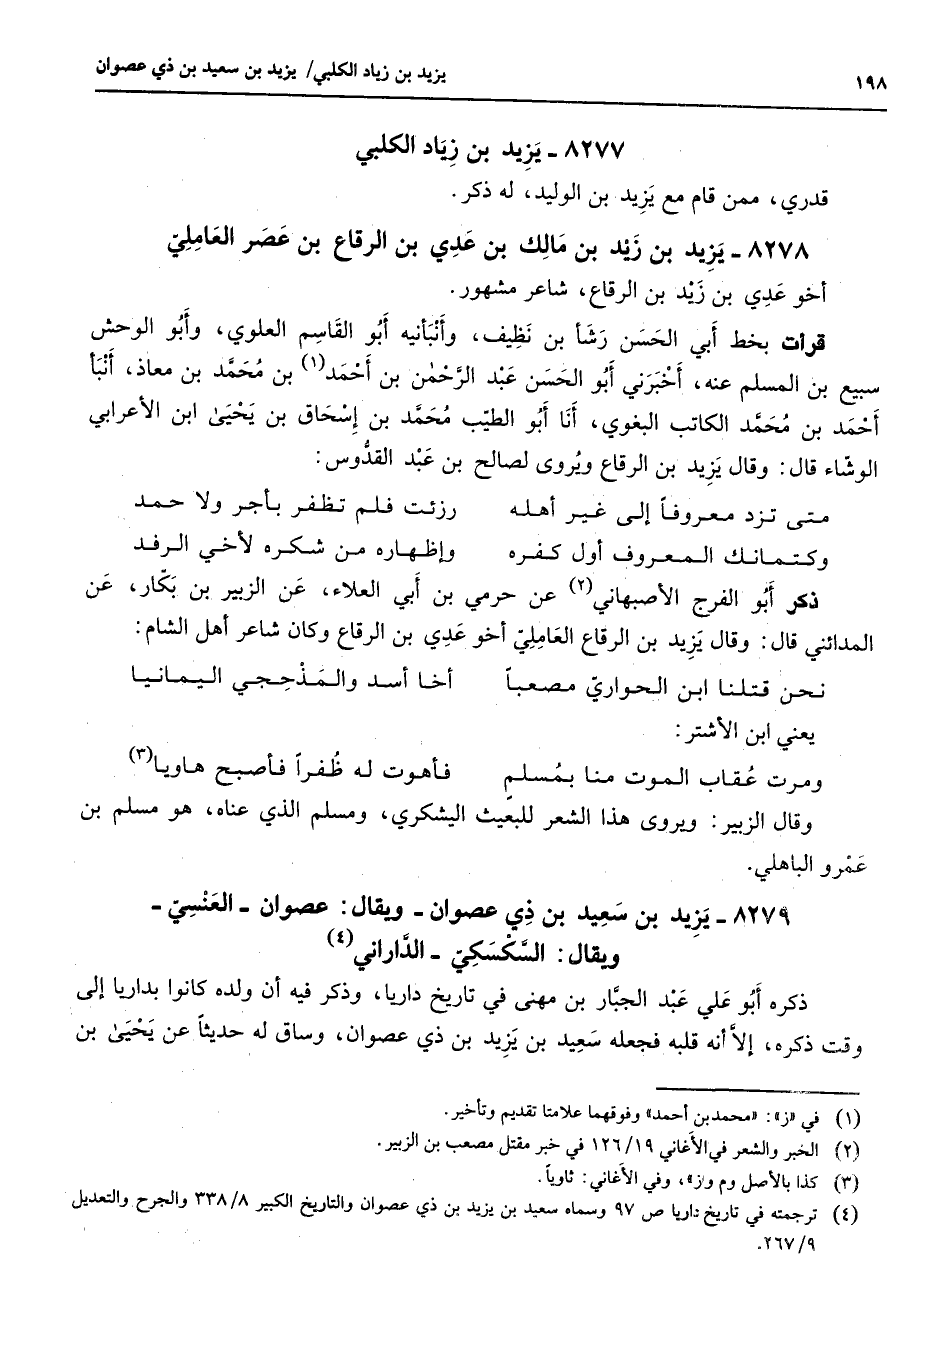 ١٩٨
يزيد بن زياد الكلبي/ يزيد بن سعيد بن ذي عصوان
٨٢٧٧ ـ يَزِيد بن زِيَاد الكلبي
قدري، ممن قام مع يَزِيد بن الوليد، له ذكر.
٨٢٧٨ ـ يَزِيد بن زَيْد بن مَالِك بن عَدِي بن الرقاع بن عَصَر العَامِلِيّ
أخو عَدِي بن زَيْد بن الرقاع، شاعر مشهور.
قرأت بخط أَبي الحَسَن رَشَأ بن نَظِيف، وأَنْبَأنيه أَبُو القَاسِم العلوي، وأَبُو الوحش
سبيع بن المسلم عنه، أَخْبَرَني أَبُو الحَسَن عَبْد الرَّحْمٰن بن أَحْمَد(١) بن مُحَمَّد بن معاذ، أَنْبَأ
أَحْمَد بن مُحَمَّد الكاتب البغوي، أَنَا أَبُو الطيّب مُحَمَّد بن إِسْحَاق بن يَحْيَىٰ ابن الأعرابي
الوشّاء قال: وقال يَزِيد بن الرقاع ويُروى لصالح بن عَبْد القدُّوس:
متى تزد معروفاً إلى غير أهله رزئت فلم تظفر بأجر ولا حمد
وكتمانك المعروف أول كفره وإظهاره من شكره لأخي الرفد
ذكر أَبُو الفرج الأصبهاني(٢) عن حرمي بن أَبي العلاء، عَن الزبير بن بَكّار، عَن
المدائني قال: وقال يَزِيد بن الرقاع العَامِلِيّ أخو عَدِي بن الرقاع وكان شاعر أهل الشام:
نحن قتلنا ابن الحواريّ مصعباً أخا أسد والمَذْحِجي اليمانيا
يعني ابن الأشتر:
ومرت عُقاب الموت منا بمُسلمٍ فأهوت له ظُفراً فأصبح هاويا(٣)
وقال الزبير: ويروى هذا الشعر للبعيث اليشكري، ومسلم الذي عناه، هو مسلم بن
عَمْرو الباهلي.
٨٢٧٩ ـ يَزِيد بن سَعِيد بن ذِي عصوان ـ ويقال: عصوان ـ العَنْسِيّ ـ
ويقال: السَّكْسَكِيّ ـ الدَّاراني(٤)
ذكره أَبُو عَلي عَبْد الجبَّار بن مهنى في تاريخ داريا، وذكر فيه أن ولده كانوا بداريا إلى
وقت ذكره، إلاَّ أنه قلبه فجعله سَعِيد بن يَزِيد بن ذي عصوان، وساق له حديثاً عن يَحْيَىٰ بن
(١) في «ز»: «محمد بن أحمد» وفوقهما علامتا تقديم وتأخير.
(٢) الخبر والشعر في الأغاني ١٩/ ١٢٦ في خبر مقتل مصعب بن الزبير.
(٣) كذا بالأصل وم و«ز»، وفي الأغاني: ثاوياً.
(٤) ترجمته في تاريخ داريا ص ٩٧ وسماه سعيد بن يزيد بن ذي عصوان والتاريخ الكبير ٨/ ٣٣٨ والجرح والتعديل
٩/ ٢٦٧.